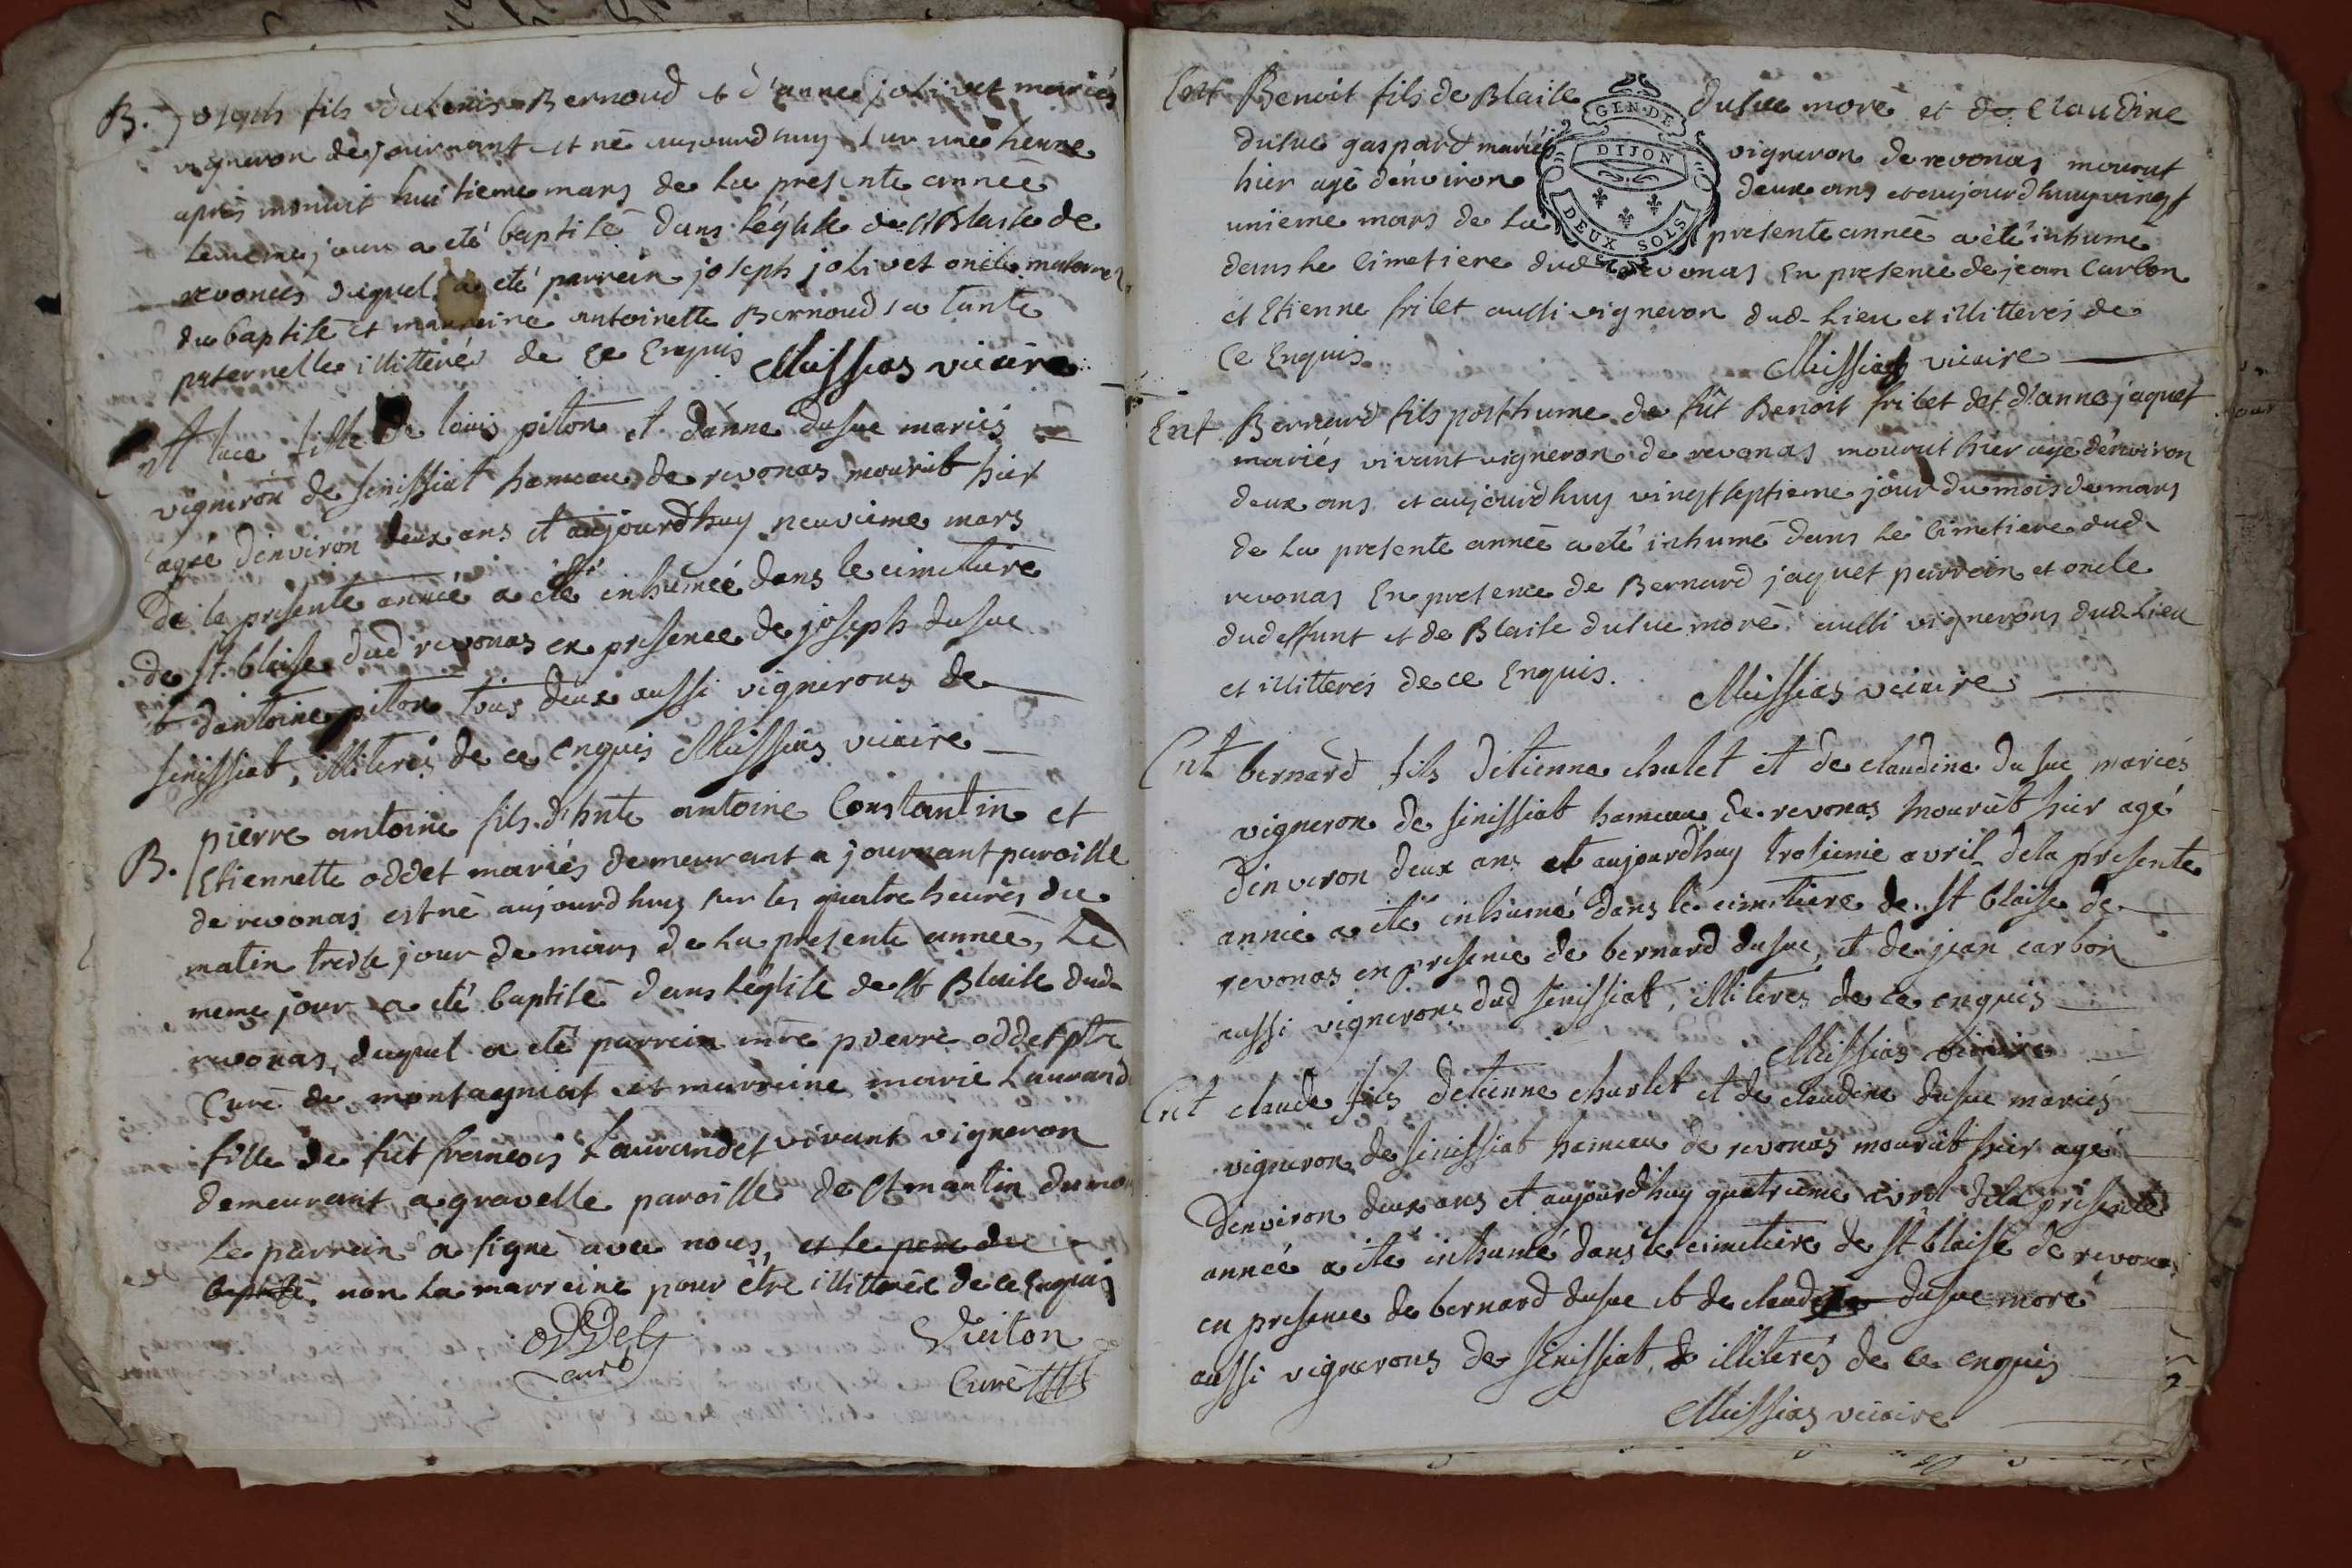 B. joseph fils de denis Bernoud et d'anne jolivet mariés
vigneron de journant est né aujourd huy sur une heure
aprés minuit huitieme mars de la presente année
le meme jour a eté baptisé dans l'eglise de st Blaise de
revonas duquel a eté parrein joseph jolivet oncle maternel
du baptisé et marreine antoinette Bernoud sa tante
paternelle illitteré de ce Enquis Missias vicaire
Ent luce fille de louis piton et d'anne dusuc mariés
vigneron de senissiat hameau de revonas mourut hier
agée d'environ deux ans et aujourd'huy neuvieme mars
de la presente année a eté inhumée dans le cimetiere
de st. blaise dud revonas en presence de joseph dusuc
et d'antoine piton tous deux aussi vignerons de
senissiat, illiterés de ce enquis Missias vicaire
B. pierre antoine fils d'hnte antoine Constantin et
Etiennette oddet mariés demeurant a journant paroisse
de revonas est né aujourd huy sur les quatre heures du
matin treise jour de mars de la presente année, Le
meme jour a eté baptisé dans l'eglise de st Blaise dud
revonas, duquel a eté parrein mre pierre oddet ptre
Curé de montagniat et marreine marie Laurand
fille de fût françois Laurandet vivant vigneron
demeurant a gravelle paroisse de st martin du mon
Le parrein a signé avec nous, et le pere du
baptisé. non la marreine pour être illitterée de ce Enquis
oddet Vuiton
curé Curé
Ent Benoit fils de Blaise dusuc moré et de Claudine
GEN. DE
DIJON
DEUX SOLS
dusuc gaspard mariés vigneron de revonas mourut
hier agé d'environ deux ans et aujourd huy vingt
unieme mars de la presente année a été inhumé
dans le Cimetiere dud revonas En presence de jean Carbon
et Etienne frilet aussi vigneron dud Lieu et illitterés de
Ce Enquis Missias vicaire
Ent Bernard fils posthume de fût Benoit frilet et d'anne jaquet
mariés vivant vigneron de revonas mourut hier agé d'environ
deux ans et aujourd huy vingt septieme jour du mois de mars
de La presente année a eté inhumé dans Le Cimetiere dud
revonas En presence de Bernard jaquet parrein et oncle
dud effunt et de Blaise dusuc moré aussi vignerons dud Lieu
et illitterés de ce Enquis. Missias vicaire
Ent bernard fils d'etienne chalet et de claudine dusuc mariés
vigneron de senissiat hameau de revonas mourut hier agé
d'environ deux ans et aujourd'huy trosieme avril de la presente
année a eté inhumé dans le cimetiere de st blaise de
revonas en presence de bernard dusuc, et de jean carbon
aussi vignerons dud senissiat, illiteres de ce enquis
Missias vicaire
Ent claude fils d'etienne charlet et de claudine dusuc mariés
vigneron de senissiat hameau de revonas mourut hier agé
d'environ deux ans et aujourd'huy quatrieme avril de la presente
année a eté inhumé dans le cimetiere de st blaise de revonas
en presence de bernard dusuc et de claude dusuc moré
aussi vignerons de senissiat, & illiterés de ce enquis
Missias vicaire